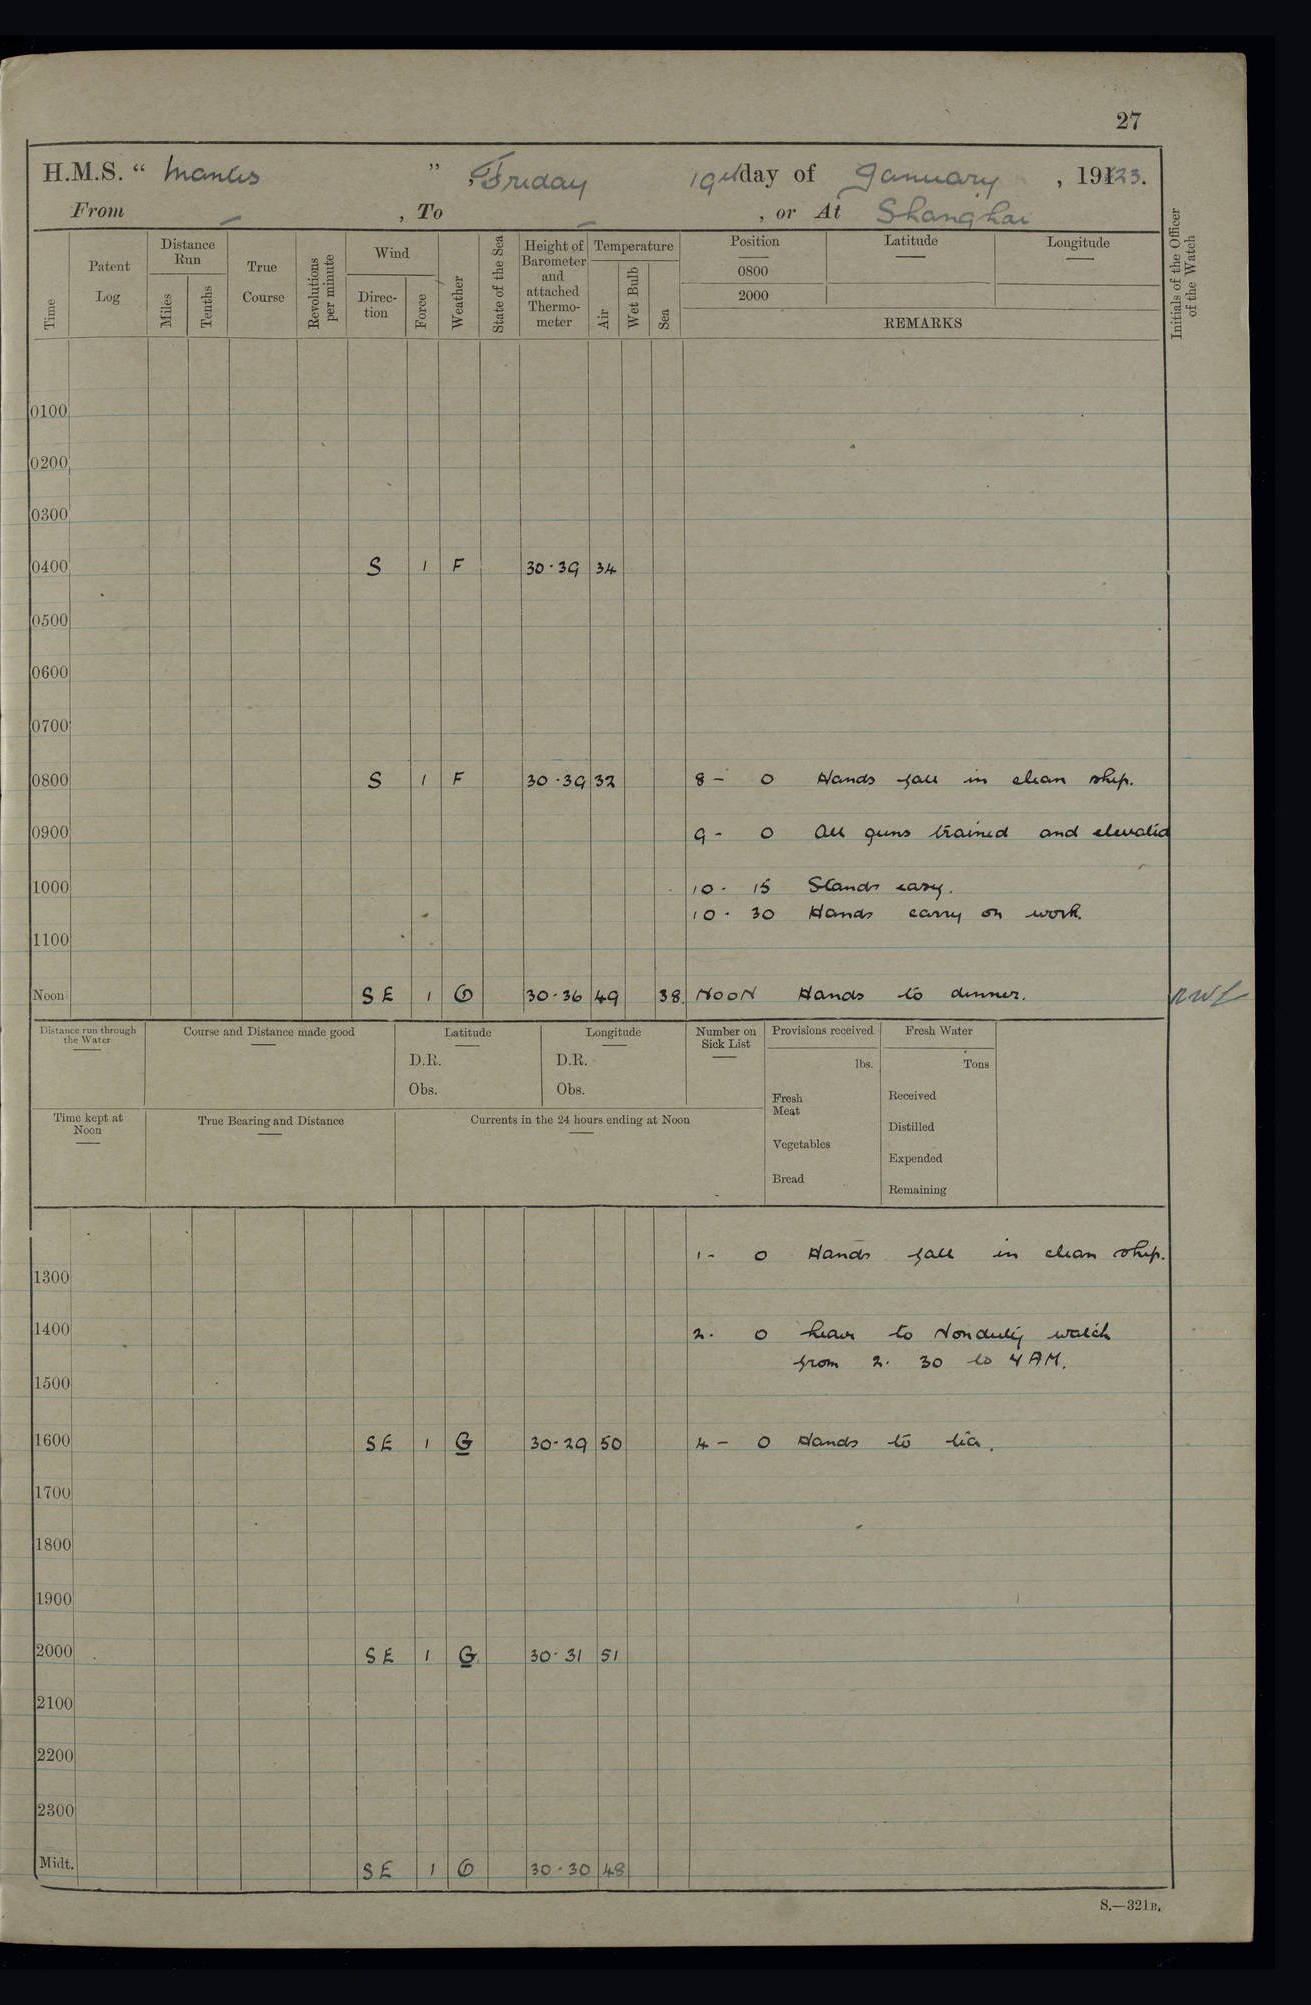 27
H.M.S. " Mantis " , Friday 19th day of January , 1923.
From — , To — , or At Shanghai
Time
Patent Log
Distance Run
Miles
Tenths
True Course
Revolutions per minute
Wind
Direc-tion
Force
Weather
State of the Sea
Height of Barometer and attached Thermo-meter
Temperature
Air
Wet Bulb
Sea
Position Latitude Longitude
0800
2000
REMARKS
Initials of the Officer of the Watch
0100
0200
0300
0400 S 1 F 30.39 34
0500
0600
0700
0800 S 1 F 30.39 32 8 - 0 Hands fall in clean ship.
0900 9 - 0 All guns trained and elevated
1000 10. 15 Stands easy.
10. 30 Hands carry on work.
1100
Noon SE 1 O 30.36 49 38 NOON Hands to dinner. RWL
Distance run through the Water
Course and Distance made good
Latitude
D.R.
Obs.
Longitude
D.R.
Obs.
Number on Sick List
Provisions received
lbs.
Fresh Meat
Vegetables
Bread
Fresh Water
Tons
Received
Distilled
Expended
Remaining
Time kept at Noon
True Bearing and Distance
Currents in the 24 hours ending at Noon
1 - 0 Hands fall in clean ship.
1300
1400 2. 0 Leave to Nonduty watch
from 2. 30 to 4 AM.
1500
1600 SE 1 G 30.29 50 4 - 0 Hands to tea.
1700
1800
1900
2000 SE 1 G 30.31 51
2100
2200
2300
Midt. SE 1 O 30.30 48
S.—321B.